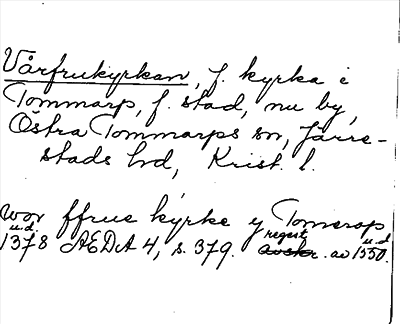 Vårfrukyrkan, f. kyrka i
Tommarp, f. stad, nu by,
Östra Tommarps sn, Järre-
stads hd, Krist. l.
wor ffrue kyrke y Tomerop
u.d. 1378 ÆDA 4, s. 379. regest av u.d. 1550.